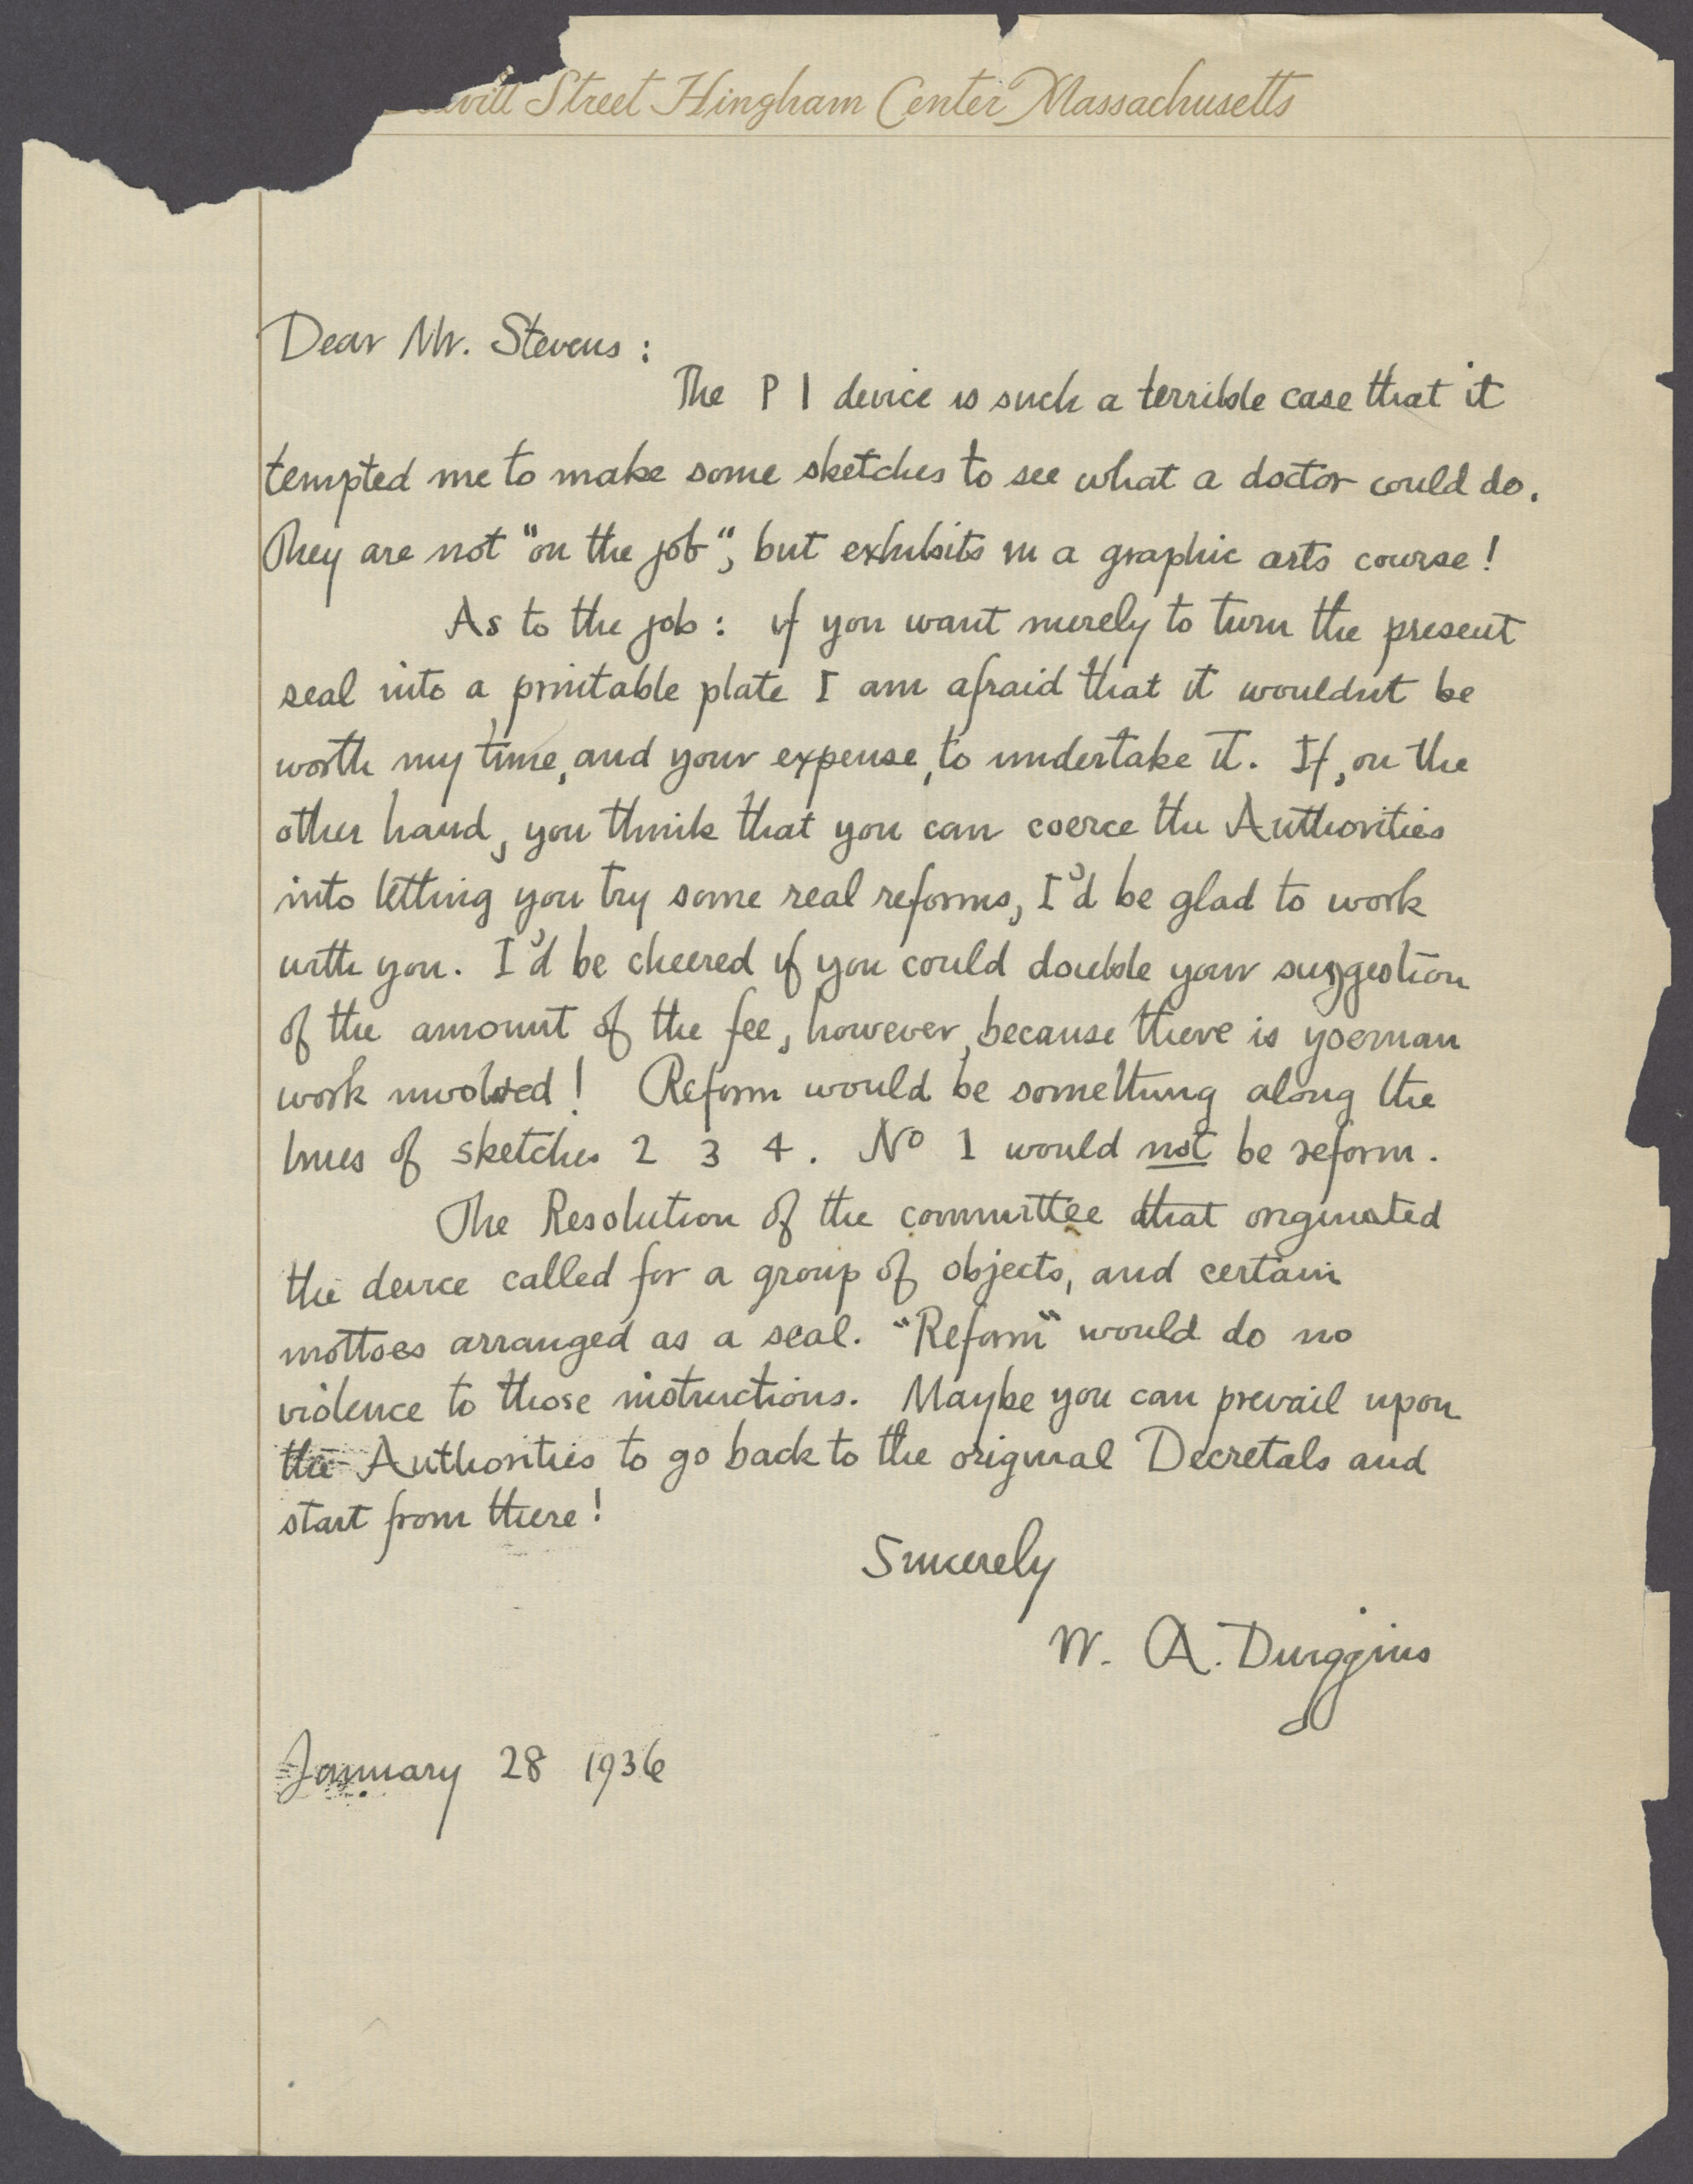 Street Hingham Center Massachusetts
Dear Mr. Stevens :
The P I device is such a terrible case that it
tempted me to make some sketches to see what a doctor could do.
They are not "on the job", but exhibits in a graphic arts course!
As to the job : if you want merely to turn the present
seal into a printable plate I am afraid that it wouldnt be
worth my time, and your expense, to undertake it. If, on the
other hand, you think that you can coerce the Authorities
into letting you try some real reforms, I'd be glad to work
with you. I'd be cheered if you could double your suggestion
of the amount of the fee, however, because there is yoeman
work involved! Reform would be something along the
lines of sketches 2 3 4. No 1 would not be reform.
The Resolution of the committee that originated
the device called for a group of objects, and certain
mottoes arranged as a seal. "Reform" would do no
violence to those instructions. Maybe you can prevail upon
the Authorities to go back to the original Decretals and
start from there!
Sincerely
W. A. Dwiggins
January 28 1936